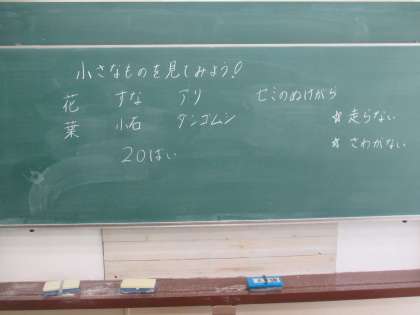 小さなものを見てみよう!
花 すな アリ セミのぬけがら
葉 小石 ダンゴムシ
☆走らない
☆さわがない
20ばい